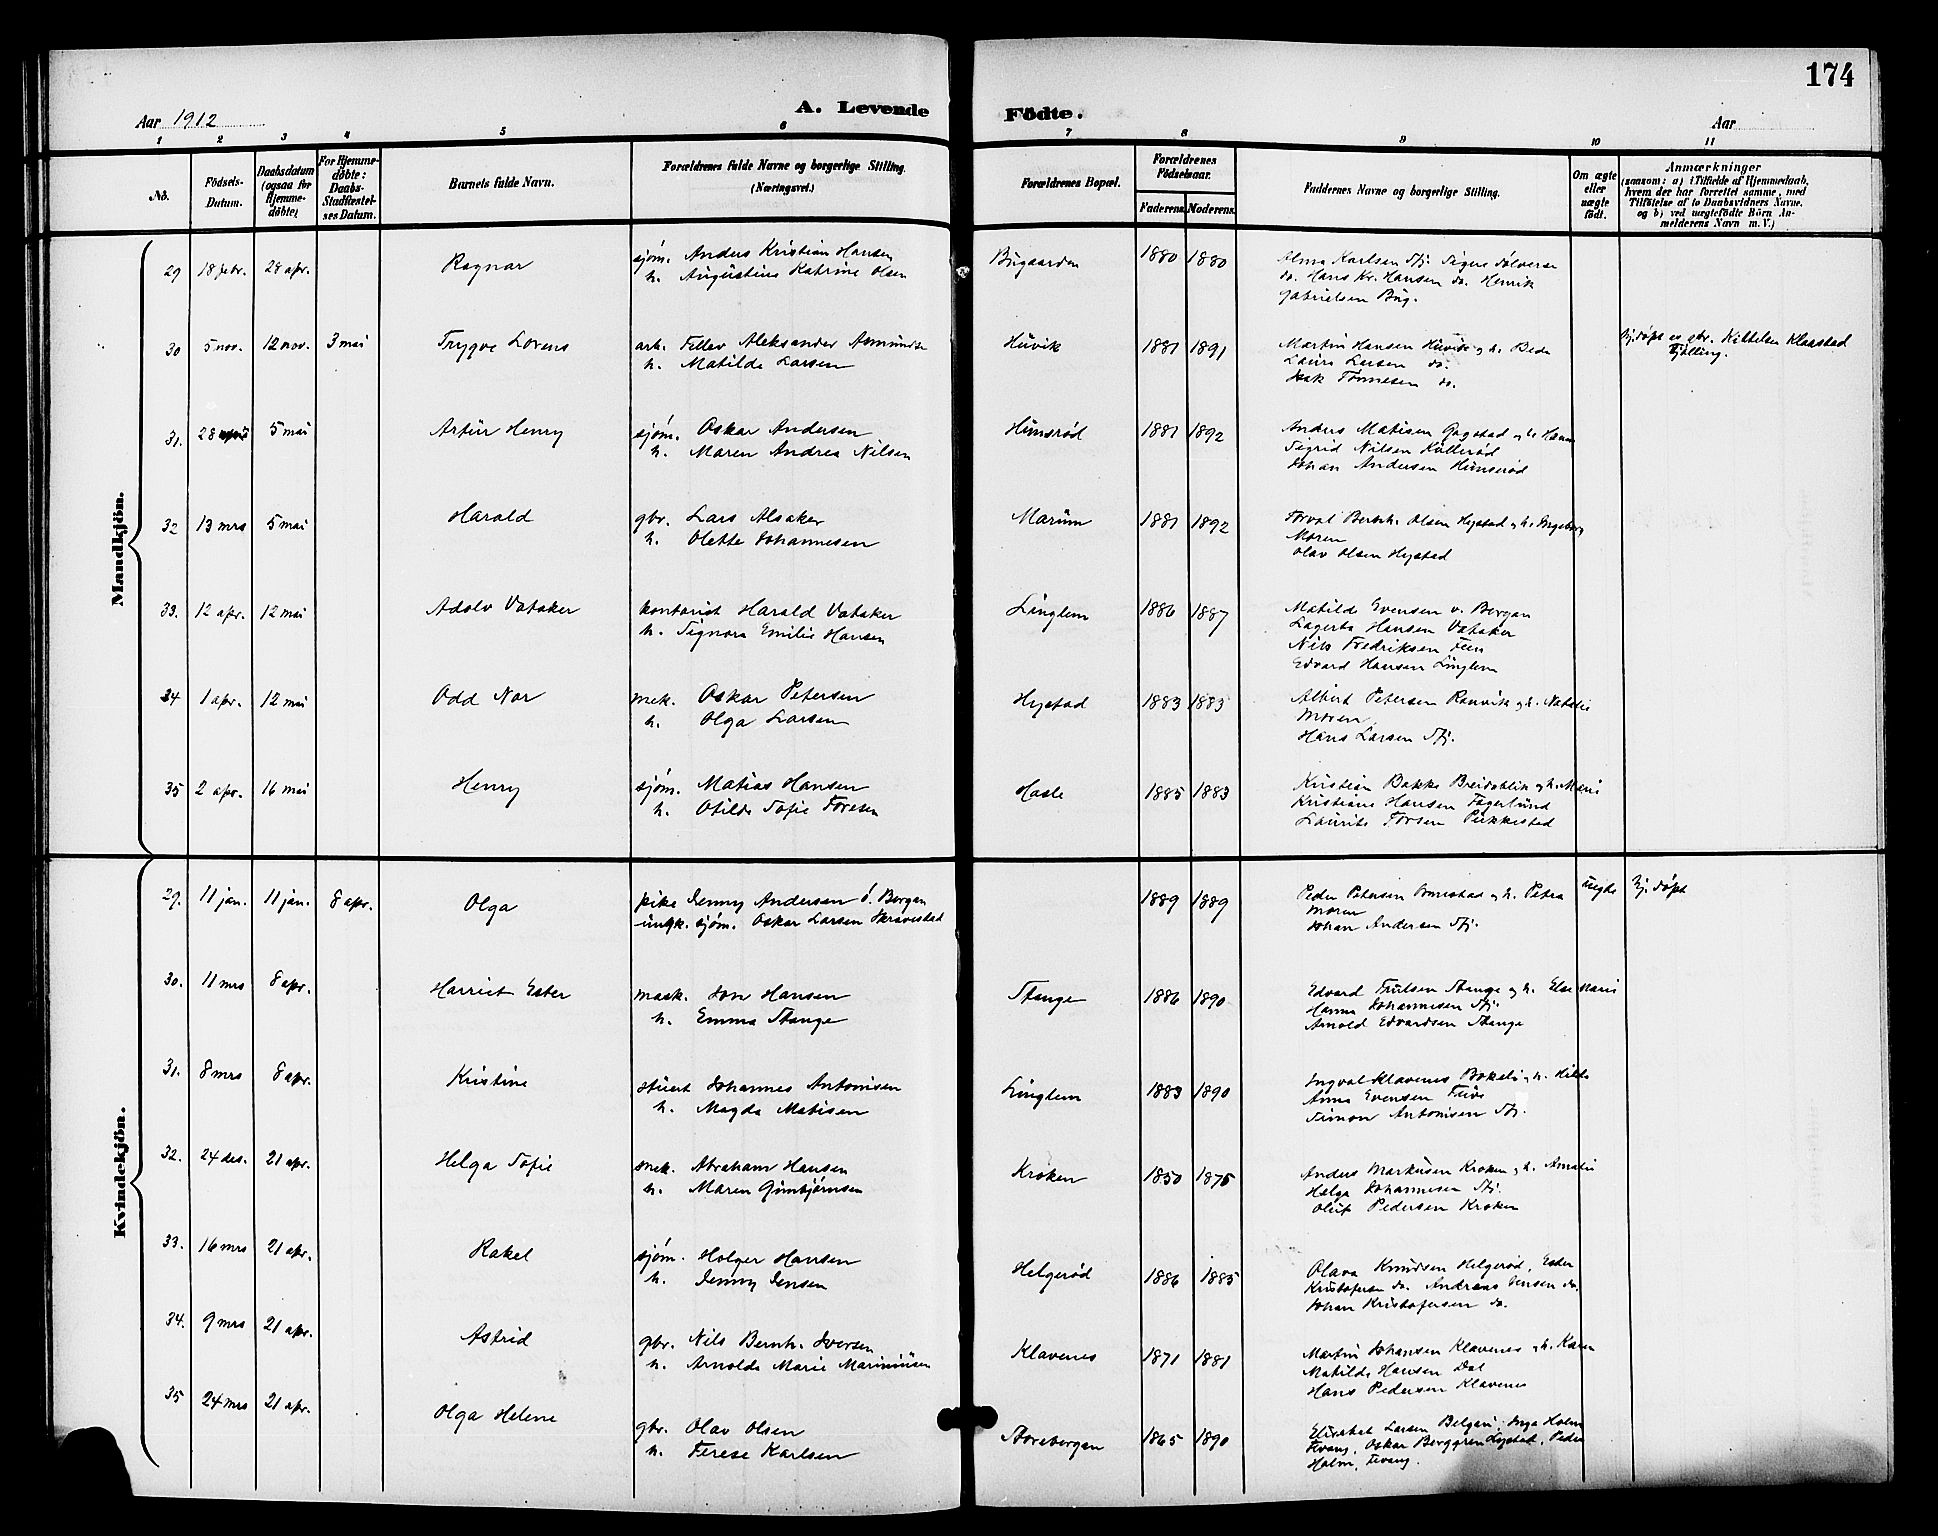 174
A. Levende Födte.
Aar 1912
Aar
1 2 3 4 5 6 7 8 9 10 11
No.
Födsels-Datum.
Daabsdatum (ogsaa for Hjemmedöbte)
For Hjemmedöbte: Daabs-Stadfæstelses Datum.
Barnets fulde Navn.
Forældrenes fulde Navne og borgerlige Stilling. (Næringsvei.)
Forældrenes Bopæl.
Forældrenes Födselsaar.
Faderens. Moderens.
Faddernes Navne og borgerlige Stilling.
Om ægte eller uægte födt.
Anmærkninger
(saasom: a) i Tilfælde af Hjemmedaab, hvem der har forrettet samme, med Tilföielse af to Daabsvidners Navne. og b) ved uægtefödte Börn Anmelderens Navn m. V.)
Mandkjön.
29 18 febr. 28 apr. Ragnar sjøm. Anders Kristian Hansen Bugaarden 1880 1880 Alma Karlsen Stj. Signe Sølverse
h. Augustine Katrine Olsen do. Hans Kr. Hansen do. Henrik
Gabrielsen Bug.
30 5 nov. 12 nov. 3 mai Trygve Lorens arb. Tellev Aleksander Asmundse Huvik 1881 1891 Martin Hansen Huvik og h. Beda hj. døpt av gbr. Kittelsen Klaastad
h. Matilde Larsen Laura Larsen do. Tjølling.
Isak Tønnesen do.
31. 28 5 mai Artur Henry sjøm. Oskar Andersen Himsrød 1881 1892 Anders Matisen Gogstad og h. Hanna
h. Maren Andrea Nilsen Sigrid Nilsen Kullerød
Johan Andersen Himsrød
32 13 mrs 5 mai Harald gbr. Lars Alsaker Marum 1881 1892 Torval Bernh. Olsen Hystad og h. Ingeborg
h. Olette Johannesen Moren
Olav Olsen Hystad
33. 12 apr. 12 mai Adolv Vataker kontorist Harald Vataker Linglem 1886 1887 Matilde Evensen v. Bergan
h. Signora Emilie Hansen Lagerta Hansen Vataker
Nils Fredriksen Feen
Edvard Hansen Linglem
34 1 apr. 12 mai Odd Nor mek. Oskar Petersen Hystad 1883 1883 Albert Petersen Ranvik og h. Natalie
h. Olga Larsen Moren
Hans Larsen Stj.
35 2 apr. 16 mai Henry sjøm. Matias Hansen Hasle 1885 1883 Kristian Bakke Breidablik og h. Marie
h. Otilde Sofie Toresen Kristiane Hansen Fagerlund
Laurits Torsen Pukkestad
Kvindekjön.
29. 11 jan. 11 jan. 8 apr. Olga pike Jenny Andersen ö. Bergan 1889 1889 Peder Petersen Ormestad og h. Petra uegte hj. døpt
ungk. sjøm. Oskar Larsen Skravestad Moren
Johan Andersen Stj.
30. 11 mrs 8 apr. Harriet Ester mask. Jon Hansen Stange 1886 1890 Edvard Trulsen Stange og h. Else Marie
h. Emma Stange Hanna Johannesen Stj.
Arnold Edvardsen Stange
31. 8 mrs 8 apr. Kristine stuert Johannes Antonisen Linglem 1883 1890 Ingval Klavenes Bokeli og h. Hilda
h. Magda Matisen Anna Evensen
Simon Antonisen Stj.
32. 24 des. 21 apr. Helga Sofie mek. Abraham Hansen Kroken 1850 1875 Anders Markusen Kroken og h. Amalie
h. Maren Gunbjørnsen Helga Johannesen Stj.
Oluf Pedersen Kroken
33. 16 mrs 21 apr. Rakel sjøm. Holger Hansen Helgerød 1886 1885 Olava Knudsen Helgerød, Ester
h. Jenny Jensen Kristofersen do. Andreas Jensen do.
Johan Kristofersen do.
34. 9 mrs 21 apr. Astrid gbr. Nils Bernh. Iversen Klavenes 1871 1881 Martin Johansen Klavenes og h. Karen
h. Arnolda Marie Mariniusen Matilde Hansen Dal
Hans Pedersen Klavenes
35 24 mrs 21 apr. Olga Helene gbr. Olav Olsen Storebergan 1865 1890 Elisabet Larsen Inga Holm
h. Terese Karlsen Tevang, Oskar Berggren Lystad, Peder
Holm, Tevang.